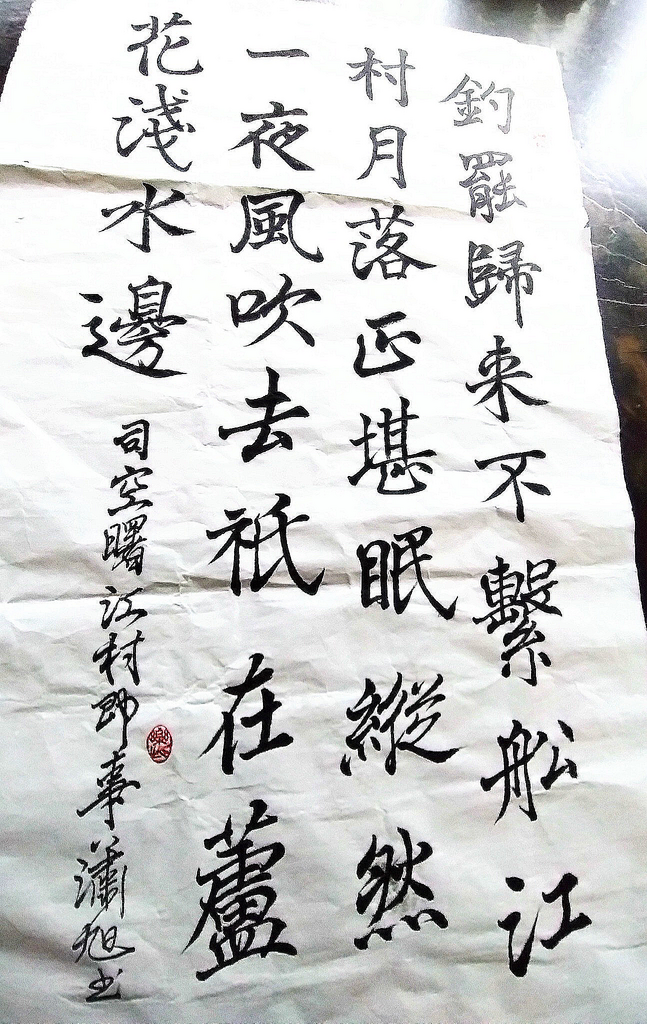 釣罷歸来不繫船江
村月落正堪眠縱然
一夜風吹去祇在蘆
花淺水邊
司空曙江村即事瀟旭书